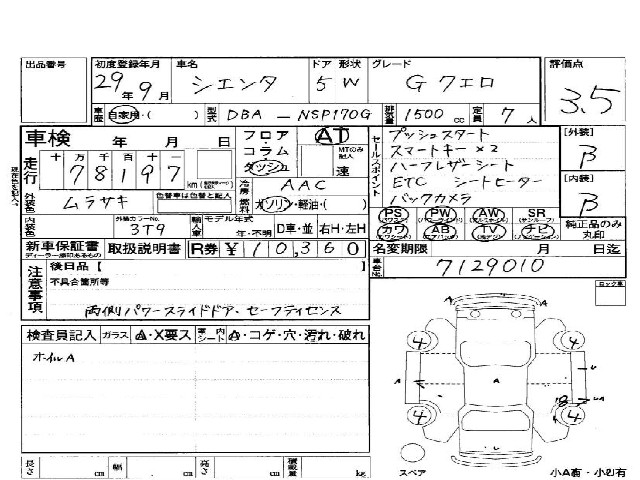 出品番号 初度登録年月 車名 ドア 形状 グレード 評価点
29年9月 シエンタ 5 W G クエロ 3.5
車歴 自家用・( ) 型式 DBA - NSP170G 排気量 1500 cc 定員 7 人
車検 年 月 日 フロア AT プッシュスタート [外装]
走行 十 万 千 百 十 一 コラム MTのみ記入 セールスポイント スマートキー×2 B
78197 km ダッシュ 速 ハーフレザーシート
冷房 AAC ETC シートヒーター [内装]
外装色 ムラサキ 色替車は色替と記入 燃料 ガソリン・軽油・( ) バックカメラ B
内装色 外装カラーNo. 3T9 輸入車 モデル年式 年・不明 D車・並 右H・左H PS PW AW SR
カワ AB TV ナビ 純正品のみ丸印
新車保証書 取扱説明書 R券 ¥10,360 名変期限 月 日迄
ディーラー捺印あるもの
注意事項 後日品 [ ] 車台No. 7129010
不具合箇所等
両側パワースライドドア・セーフティセンス
検査員記入 ガラス A・X要ス 車内シート A・コゲ・穴・汚れ・破れ
ホイルA
4 4
A A U
4 4
長さ cm 幅 cm 高さ cm 積載量 kg スペア 小A有・小U有